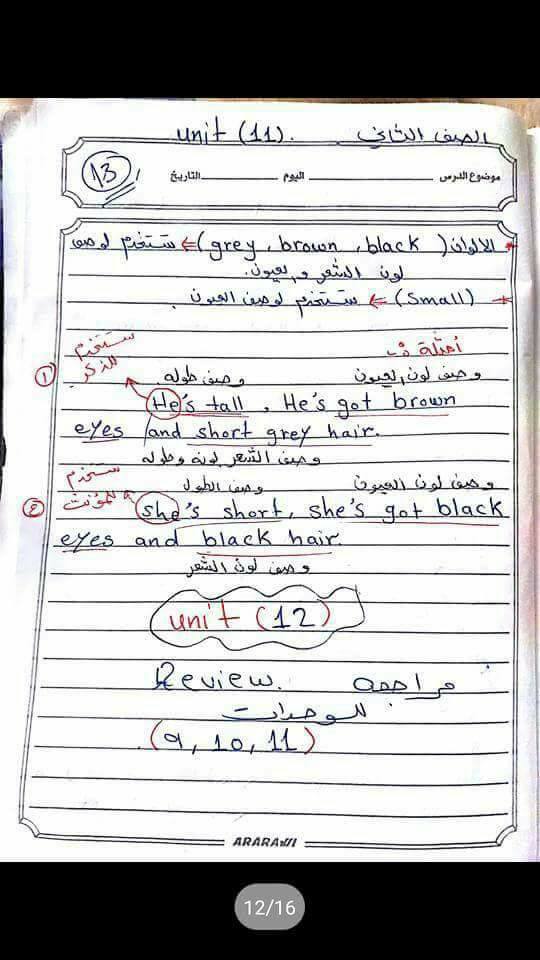 الصف الثاني. unit (11).
13
موضوع الدرس اليوم التاريخ
* الالوان (grey, brown, black) ⇐ ستخدم لوصف
لون الشعر والعيون.
* (Small) ⇐ ستخدم لوصف العيون.
أمثلة
ستخدم
للذكر
① وصف لون العيون وصف طوله
He's tall, He's got brown
eyes and short grey hair.
وصف الشعر لونه وطوله
ستخدم
للمؤنث
② وصف لون العيون وصف الطول
she's short, she's got black
eyes and black hair.
وصف لون الشعر
unit (12)
Review. مراجعه
للوحدات
(9, 10, 11).
12/16